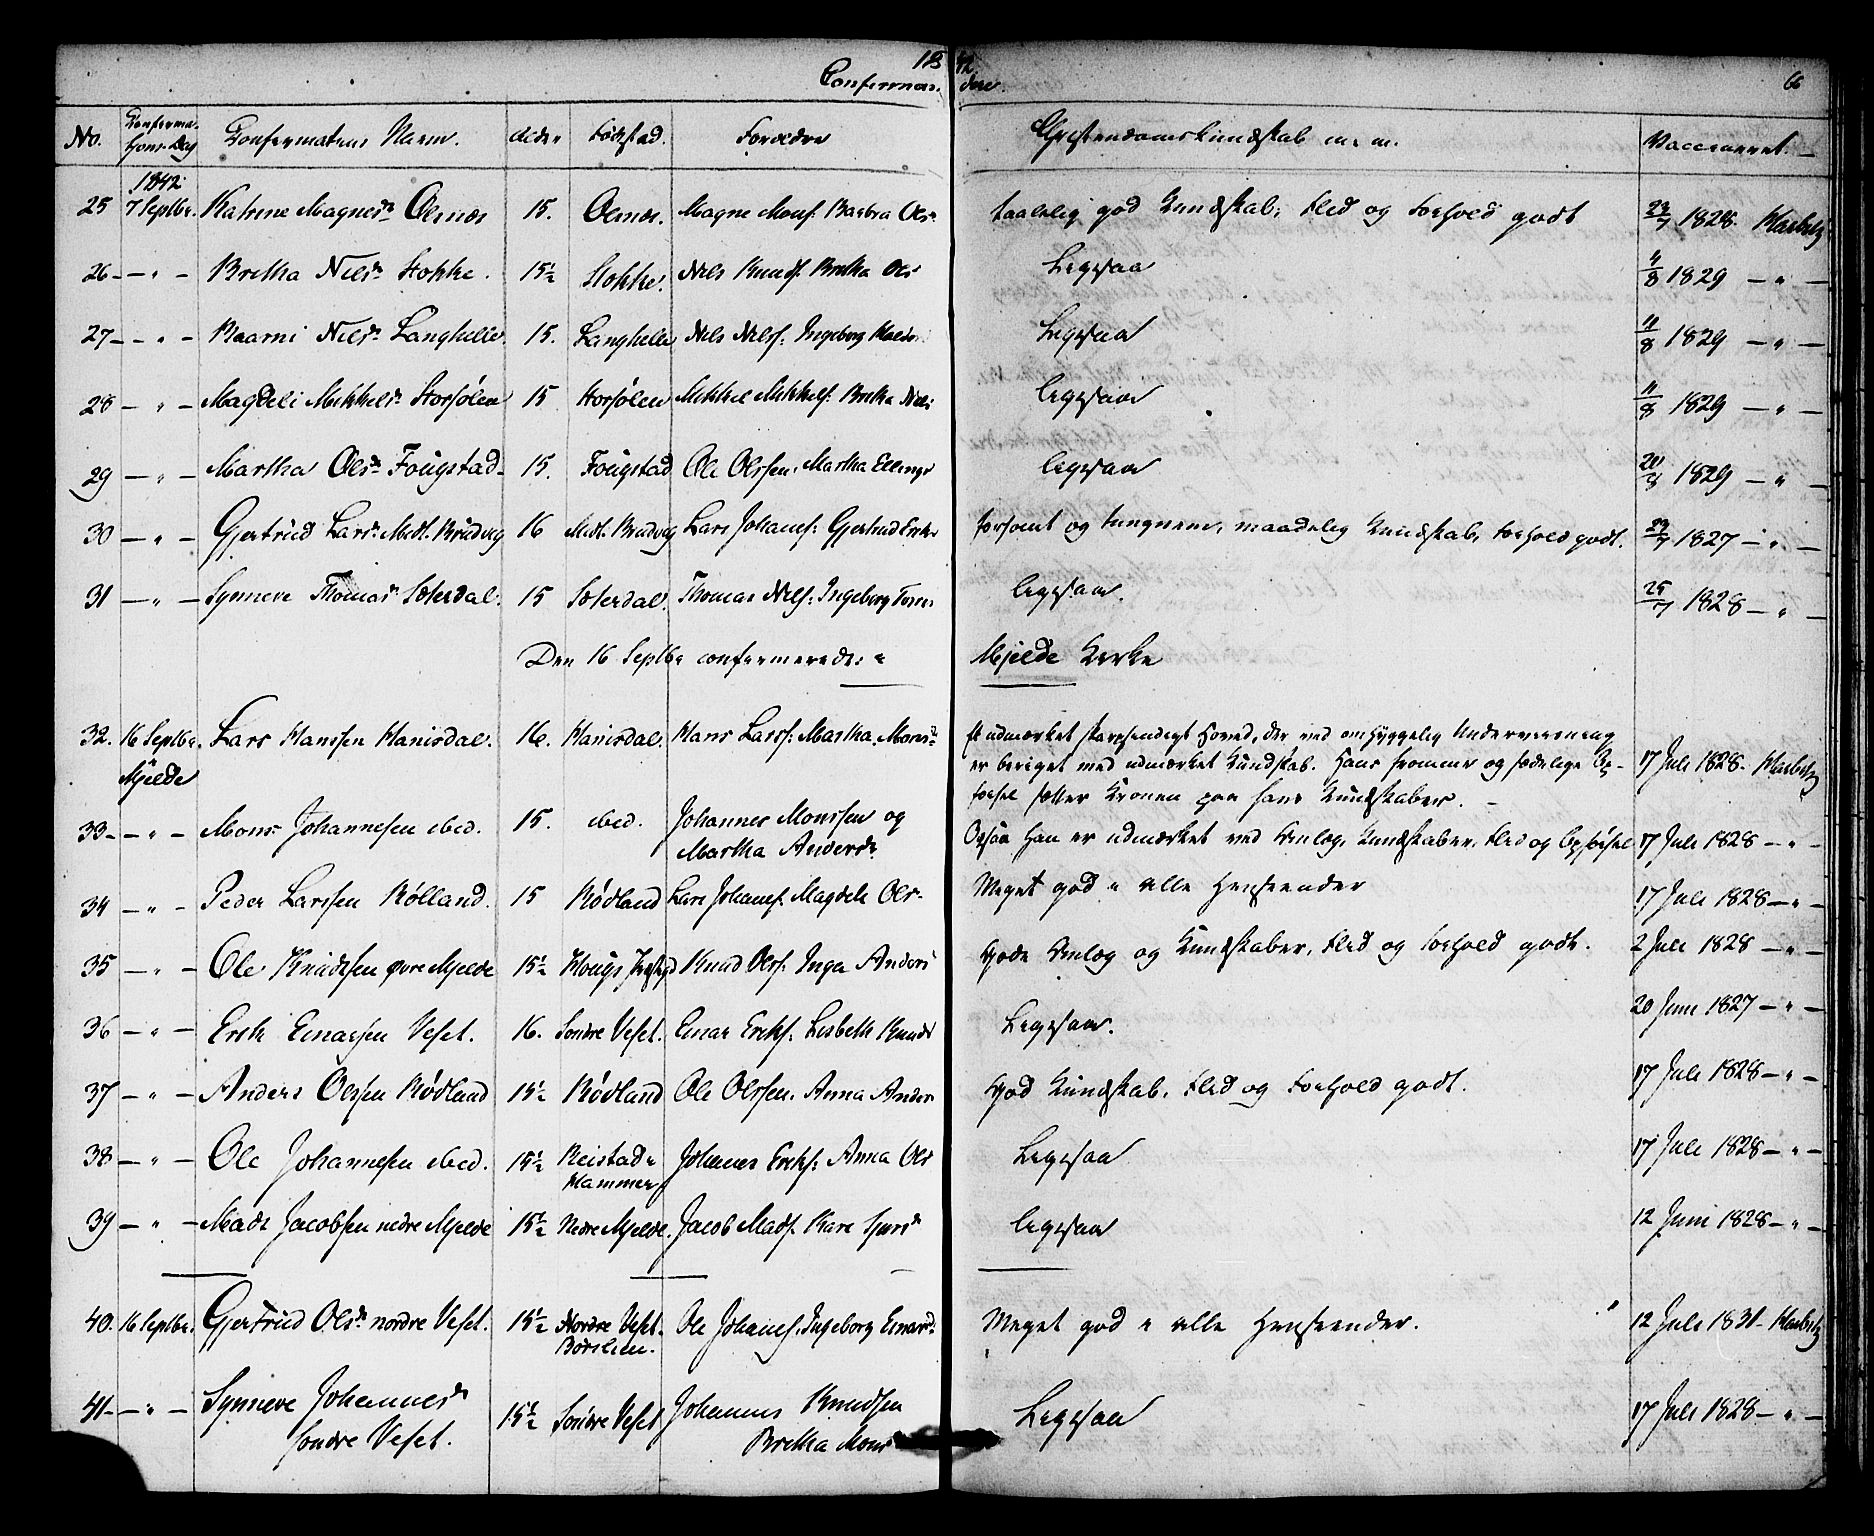 18 42.
Confirman dere. 66
No. Confirma- tions-Dag Confirmatens Navn. Alder Fødested. Forældre Christendomskundskab m. m. Vaccineret.
1842
25 7 Septbr. Katrine Magnesdr Olsnæs 15. Olsnæs. Magne Monss. Barbra Olsdr taalelig god Kundskab, Flid og Forhold godt 23/7 1828. Harbitz
26 — " — Britha Nilsdr Stokke. 15½ Stokke. Nils Knuds. Britha Ols Ligesaa 11/8 1829 — " —
27 — " — Nilsdr Langhelle. 15. Langhelle Nils Nilss. Ingeborg Ligesaa 11/8 1829 — " —
28 — " — Magdeli Mikkelsdr Storsølen 15 Storsølen Mikkel Mikkels. Britha Nils ligesaa 11/8 1829 — " —
29 — " — Martha Olsdr Fougstad 15. Fougstad Ole Olssen. Martha Ellings ligesaa 20/8 1829 — " —
30 — " — Gjertrud Larsdr Midt. Brudvig 16 Midt. Brudvig Lars Johanes. Gjertrud Eriks forsømt og tungnem, maadelig Kundskab, Forhold godt. 23/7 1827 — " —
31 — " — Synneve Thomasdr Sæterdal. 15 Sæterdal. Thomas Nilss. Ingeborg ligesaa. 25/7 1828 — " —
Den 16 Septbr confirmerede i Mjelde Kirke
32. 16 Septbr. Lars Hanssen Hanisdal. 16. Hanisdal. Hans Larss. Martha Monsdr Et udmærket skarpsindigt Hoved, der ved omhyggelig Underviisning
Mjelde er beriget med udmærket Kundskab. Hans fromme og sædelige Op- 17 Juli 1828. Harbitz
førsel sætter Kronen paa hans Kundskaber. —
33 — " — Mons Johannesen ibid. 15. ibid. Johannes Monssen og
Martha Andersdr. Ogsaa Han er udmærket ved Anlæg, Kundskaber, Flid og Opførsel 17 Juli 1828 — " —
34 — " — Peder Larssen Rølland. 15 Rødland Lars Johanes. Magdeli Ols. Meget god i alle Henseender 17 Juli 1828 — " —
35 — " — Ole Knudsen øvre Mjelde 15½ Knud Olss. Inger Anders Gode Anlæg og Kundskaber, Flid og Forhold godt. 2 Juli 1828 — " —
36 — " — Erik Einarssen Veset. 16. Søndre Veset. Einar Eriks. Lisbeth Knuds Ligesaa. 20 Juni 1827 — " —
37 — " — Anders Olssen Rødland 15½ Rødland Ole Olssen. Anna Anders God Kundskab, Flid og Forhold godt. 17 Juli 1828 — " —
38 — " — Ole Johannesen ibid. 15½ Reistad i
Hammer Johannes Eriks. Anna Ols Ligesaa 17 Juli 1828 — " —
39 — " — Mads Jacobsen nedre Mjelde 15½ Nedre Mjelde. Jacob Mads. Kari ligesaa 12 Juni 1828 — " —
40. 16 Septbr. Gjertrud Olsdr nordre Veset. 15½ Nordre Veset.
Ole Johanes. Ingeborg Einarsdr Meget god i alle Henseender. 12 Juli 1831 — Harbitz
41 — " — Synneve Johannesdr
søndre Veset. 15½ Søndre Veset Johannes Knudsen
Britha Mons Ligesaa 17 Juli 1828 — " —